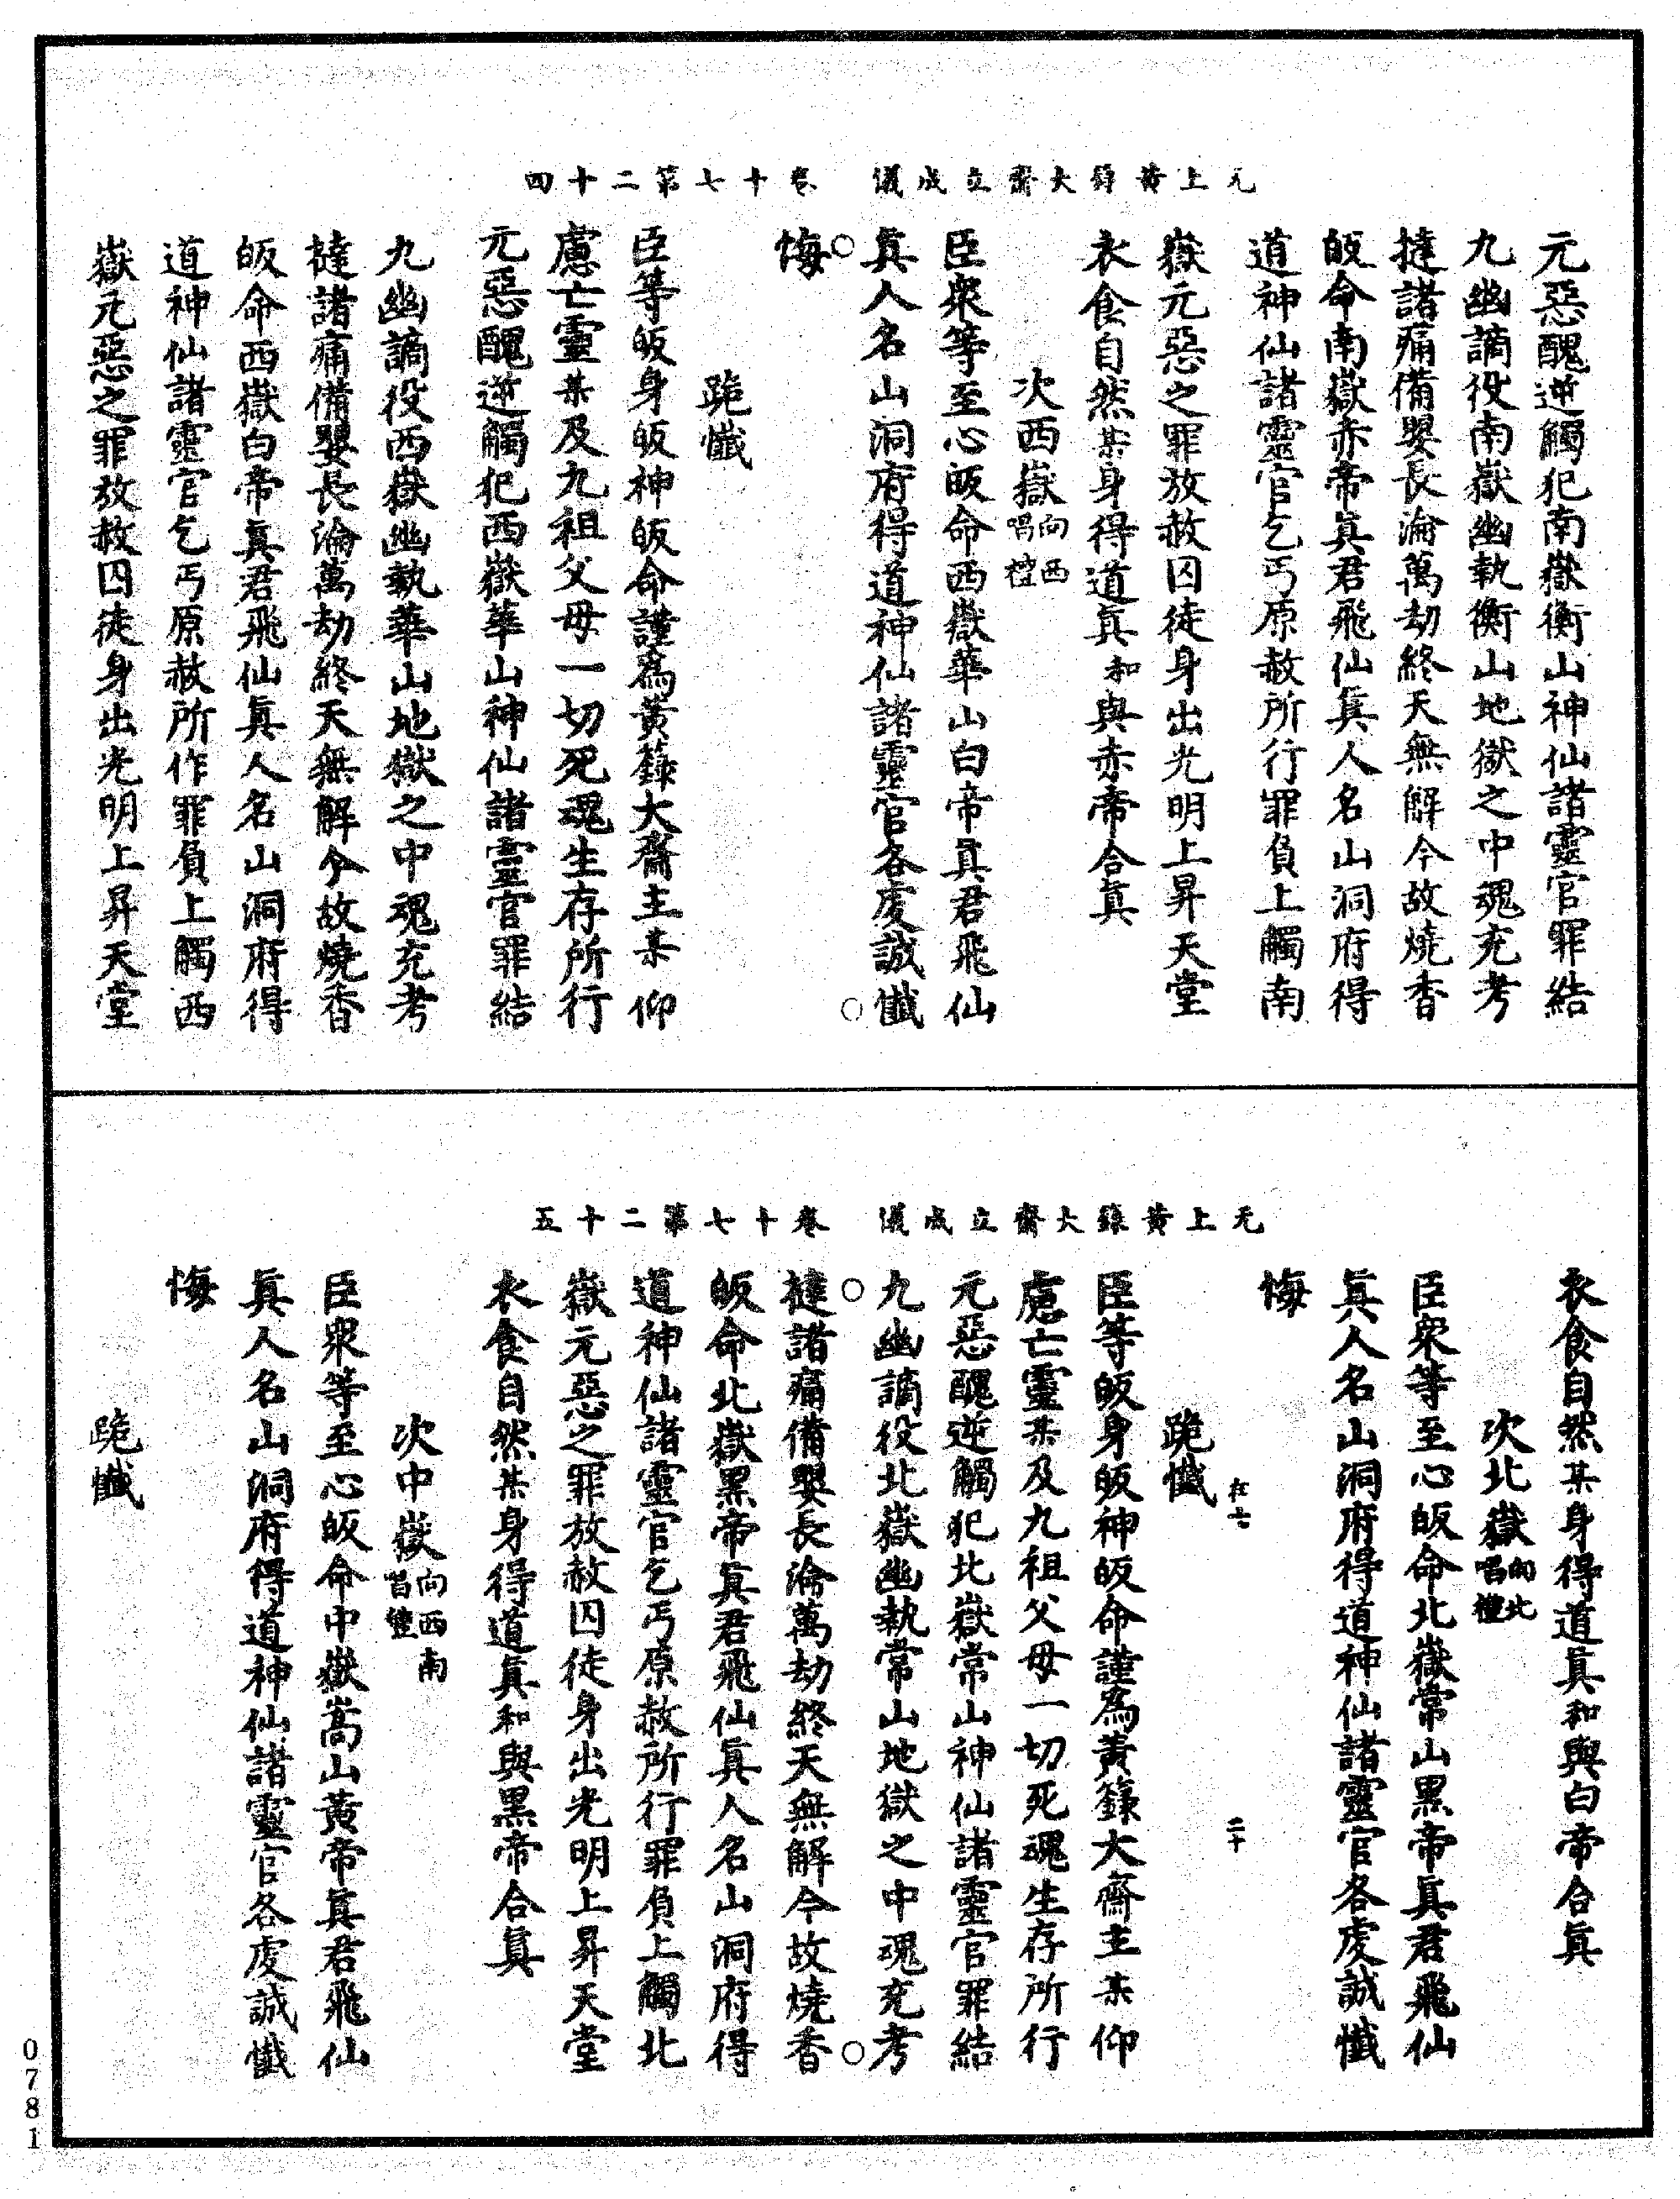 无上黃籙大齋立成儀 卷十七第二十四
元惡醜逆觸犯南嶽衡山神仙諸靈官罪結
九幽謫役南嶽幽執衡山地獄之中魂充考
撻諸痛備嬰長淪萬劫終天無解今故燒香
皈命南嶽赤帝眞君飛仙眞人名山洞府得
道神仙諸靈官乞丐原赦所行罪負上觸南
嶽元惡之罪放赦囚徒身出光明上昇天堂
衣食自然某身得道眞和與赤帝合眞
次西嶽向西唱禮
臣衆等至心皈命西嶽華山白帝眞君飛仙
眞人名山洞府得道神仙諸靈官各虔誠懺
悔
跪懺
臣等皈身皈神皈命謹爲黃籙大齋主某仰
慮亡靈某及九祖父母一切死魂生存所行
元惡醜逆觸犯西嶽華山神仙諸靈官罪結
九幽謫役西嶽幽執華山地獄之中魂充考
撻諸痛備嬰長淪萬劫終天無解今故燒香
皈命西嶽白帝眞君飛仙眞人名山洞府得
道神仙諸靈官乞丐原赦所作罪負上觸西
嶽元惡之罪放赦囚徒身出光明上昇天堂
无上黃籙大齋立成儀 卷十七第二十五
衣食自然某身得道眞和與白帝合眞
次北嶽向北唱禮
臣衆等至心皈命北嶽常山黑帝眞君飛仙
眞人名山洞府得道神仙諸靈官各虔誠懺
悔
在七 二十
跪懺
臣等皈身皈神皈命謹爲黃籙大齋主某仰
慮亡靈某及九祖父母一切死魂生存所行
元惡醜逆觸犯北嶽常山神仙諸靈官罪結
九幽謫役北嶽幽執常山地獄之中魂充考
撻諸痛備嬰長淪萬劫終天無解今故燒香
皈命北嶽黑帝眞君飛仙眞人名山洞府得
道神仙諸靈官乞丐原赦所行罪負上觸北
嶽元惡之罪放赦囚徒身出光明上昇天堂
衣食自然某身得道眞和與黑帝合眞
次中嶽向西南唱禮
臣衆等至心皈命中嶽嵩山黃帝眞君飛仙
眞人名山洞府得道神仙諸靈官各虔誠懺
悔
跪懺
0781